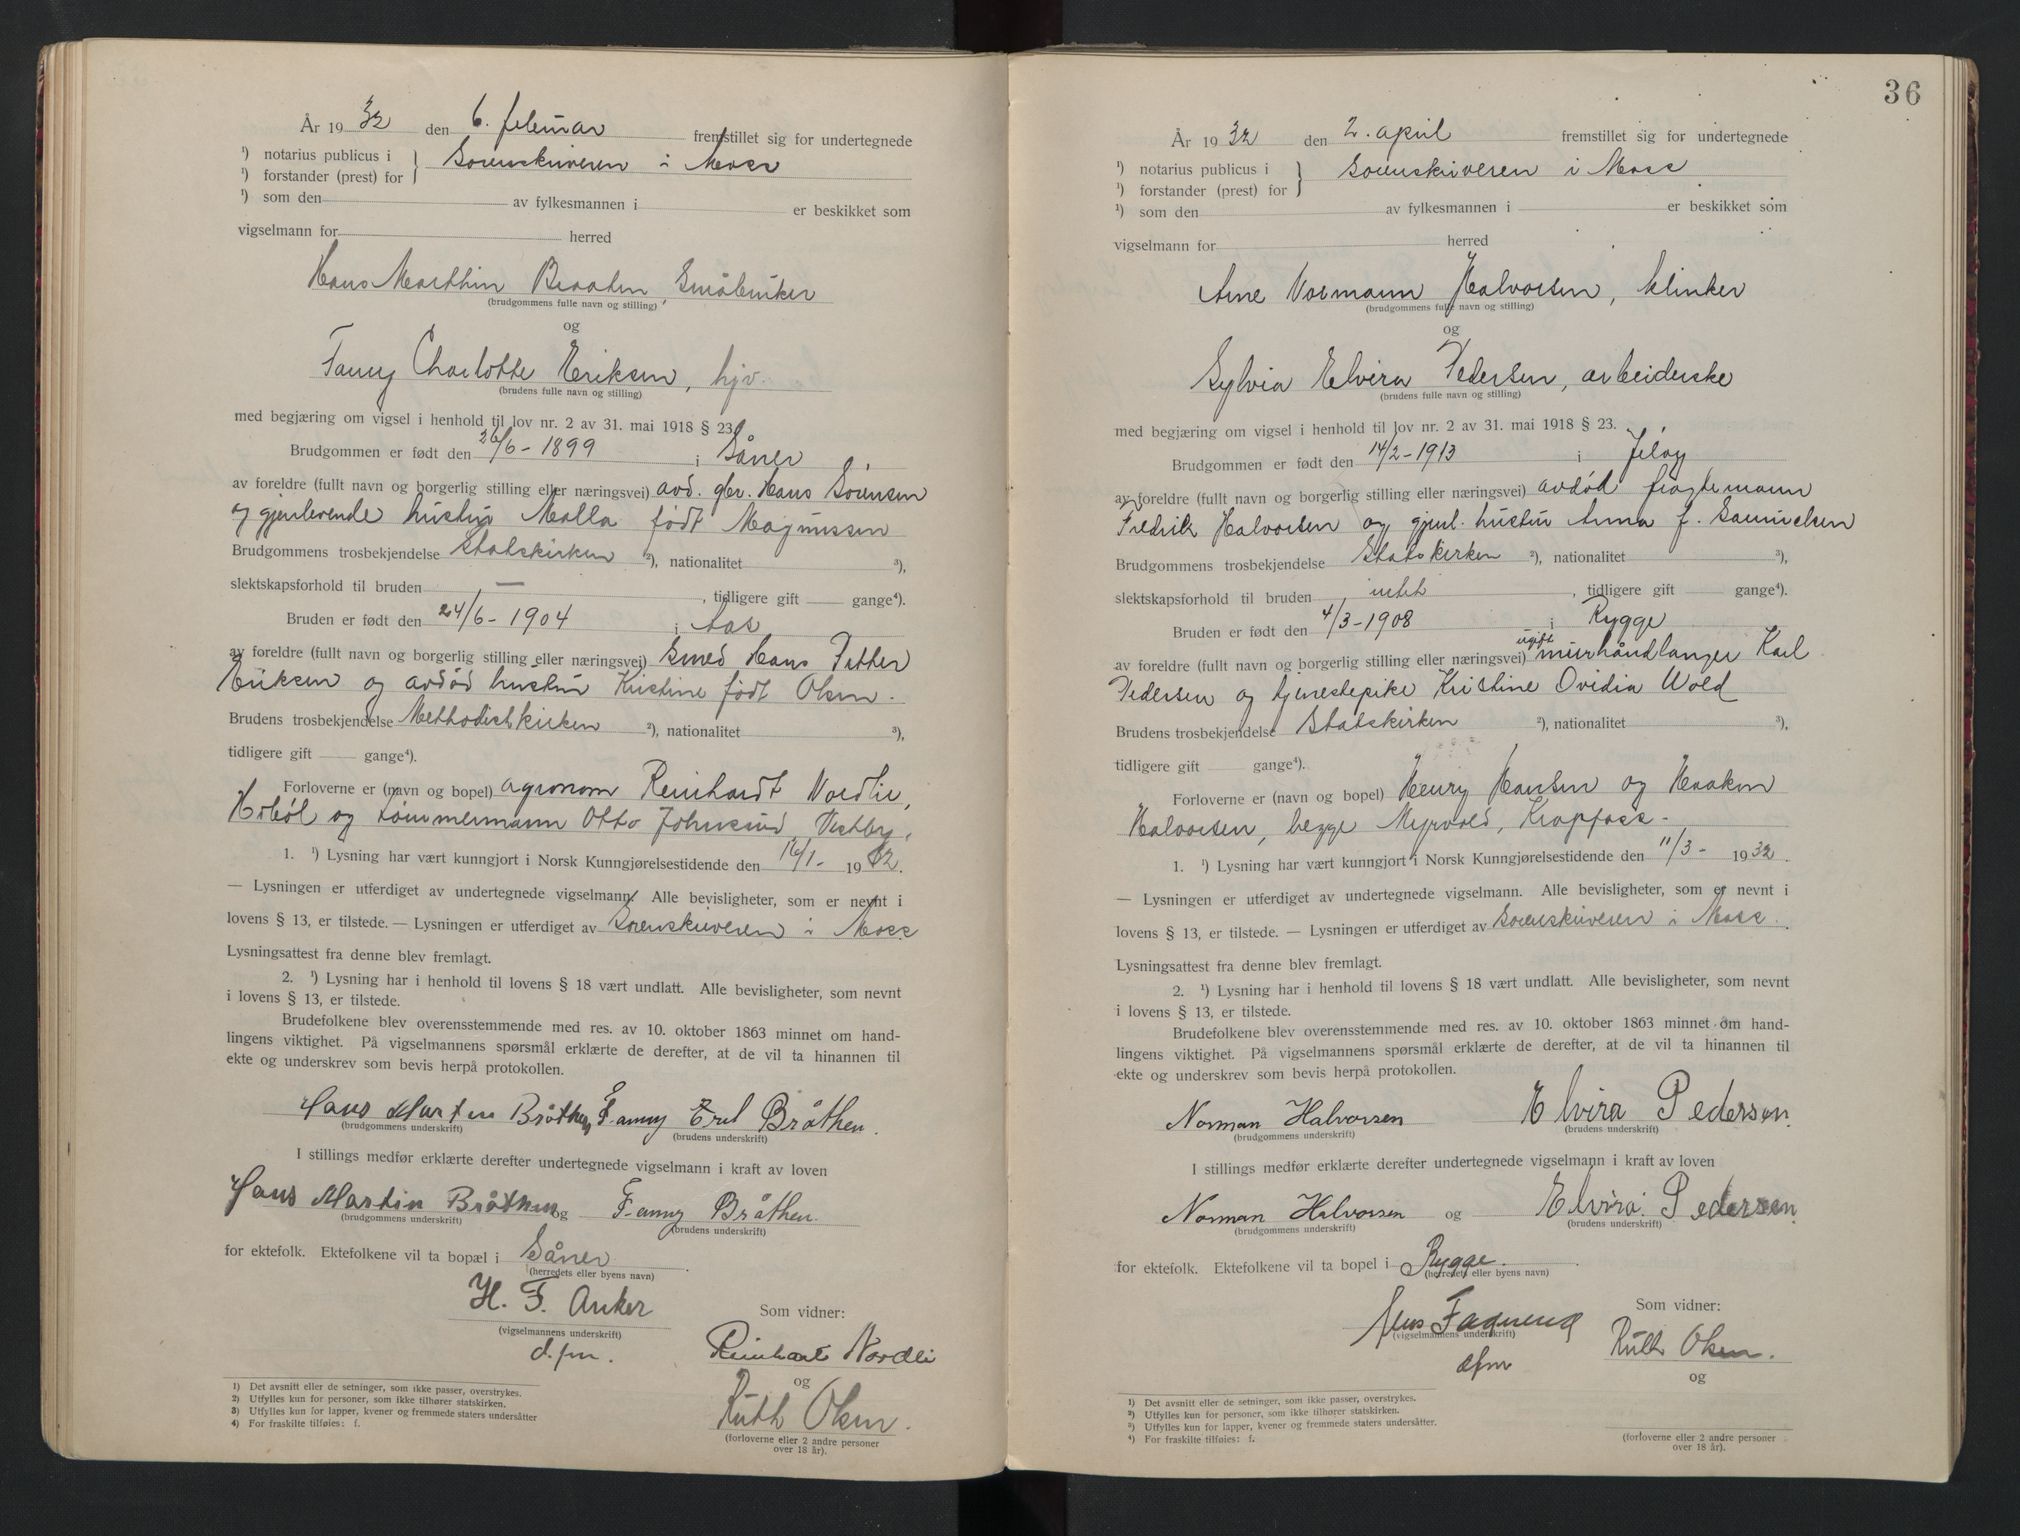 År 19 32 den 6. februar fremstillet sig for undertegnede
¹) notarius publicus i } Sorenskriveren i Moss
¹) forstander (prest) for
¹) som den av fylkesmannen i er beskikket som
vigselmann for herred
Hans Marthin Braaten, Småbruker
(brudgommens fulle navn og stilling)
og
Fanny Charlotte Eriksen, hjv.
(brudens fulle navn og stilling)
med begjæring om vigsel i henhold til lov nr. 2 av 31. mai 1918 § 23.
Brudgommen er født den 26/6 - 1899 i Såner
av foreldre (fullt navn og borgerlig stilling eller næringsvei) avd. gbr. Hans Sörensen
og gjenlevende hustru Malla født Magnussen
Brudgommens trosbekjendelse Statskirken ²), nationalitet ³),
slektskapsforhold til bruden — , tidligere gift gange⁴).
Bruden er født den 24/6 - 1904 i Aas
av foreldre (fullt navn og borgerlig stilling eller næringsvei) Smed Hans Petter
Eriksen og avdød hustru Kristine født Olsen.
Brudens trosbekjendelse Methodistkirken ²), nationalitet ³),
tidligere gift gange⁴).
Forloverne er (navn og bopel) agronom Reinhardt Nordlie,
Hobøl og tømmermann Otto Johnsrud, Vestby.
1. ¹) Lysning har vært kunngjort i Norsk Kunngjørelsestidende den 16/1 - 19 32.
— Lysningen er utferdiget av undertegnede vigselmann. Alle bevisligheter, som er nevnt i
lovens § 13, er tilstede. — Lysningen er utferdiget av Sorenskriveren i Moss
Lysningsattest fra denne blev fremlagt.
2. ¹) Lysning har i henhold til lovens § 18 vært undlatt. Alle bevisligheter, som nevnt
i lovens § 13, er tilstede.
Brudefolkene blev overensstemmende med res. av 10. oktober 1863 minnet om hand-
lingens viktighet. På vigselmannens spørsmål erklærte de derefter, at de vil ta hinannen til
ekte og underskrev som bevis herpå protokollen.
Hans Martin Bråthen Fanny Bråthen.
(brudgommens underskrift) (brudens underskrift)
I stillings medfør erklærte derefter undertegnede vigselmann i kraft av loven
Hans Martin Bråthen og Fanny Bråthen.
(brudgommens underskrift) (brudens underskrift)
for ektefolk. Ektefolkene vil ta bopæl i Såner
(herredets eller byens navn)
H. F. Anker Som vidner:
(vigselmannens underskrift)
d.fm. Reinhart Nordli
og
Ruth Olsen.
(forloverne eller 2 andre personer
over 18 år).
1) Det avsnitt eller de setninger, som ikke passer, overstrykes.
2) Utfylles kun for personer, som ikke tilhører statskirken.
3) Utfylles kun for lapper, kvener og fremmede staters undersåtter
4) For fraskilte tilføies: f.
36
År 19 32 den 2. april fremstillet sig for undertegnede
¹) notarius publicus i } Sorenskriveren i Moss
¹) forstander (prest) for
¹) som den av fylkesmannen i er beskikket som
vigselmann for herred
Arne Normann Halvorsen, klinker
(brudgommens fulle navn og stilling)
og
Sylvia Elvira Pedersen, arbeiderske
(brudens fulle navn og stilling)
med begjæring om vigsel i henhold til lov nr. 2 av 31. mai 1918 § 23.
Brudgommen er født den 14/2 - 1913 i Jeløy
av foreldre (fullt navn og borgerlig stilling eller næringsvei) avdød fragtemann
Fredrik Halvorsen og gjenl. hustru Anna f. Samuelsen
Brudgommens trosbekjendelse Statskirken ²), nationalitet ³),
slektskapsforhold til bruden intet , tidligere gift gange⁴).
Bruden er født den 4/3 - 1908 i Rygge
av foreldre (fullt navn og borgerlig stilling eller næringsvei) ugift murhåndlanger Karl
Pedersen og tjenestepike Kristine Ovidia Wold
Brudens trosbekjendelse Statskirken ²), nationalitet ³),
tidligere gift gange⁴).
Forloverne er (navn og bopel) Henry Hansen og Haakon
Halvorsen, begge Myrvold, Krapfoss.
1. ¹) Lysning har vært kunngjort i Norsk Kunngjørelsestidende den 11/3 - 1932.
— Lysningen er utferdiget av undertegnede vigselmann. Alle bevisligheter, som er nevnt i
lovens § 13, er tilstede. — Lysningen er utferdiget av Sorenskriveren i Moss.
Lysningsattest fra denne blev fremlagt.
2. ¹) Lysning har i henhold til lovens § 18 vært undlatt. Alle bevisligheter, som nevnt
i lovens § 13, er tilstede.
Brudefolkene blev overensstemmende med res. av 10. oktober 1863 minnet om hand-
lingens viktighet. På vigselmannens spørsmål erklærte de derefter, at de vil ta hinannen til
ekte og underskrev som bevis herpå protokollen.
Norman Halvorsen Elvira Pedersen.
(brudgommens underskrift) (brudens underskrift)
I stillings medfør erklærte derefter undertegnede vigselmann i kraft av loven
Norman Halvorsen og Elvira Pedersen.
(brudgommens underskrift) (brudens underskrift)
for ektefolk. Ektefolkene vil ta bopel i Rygge.
(herredets eller byens navn)
Som vidner:
Jens
(vigselmannens underskrift) Ruth Olsen.
dfm
og
(forloverne eller 2 andre personer
over 18 år).
¹) Det avsnitt eller de setninger, som ikke passer, overstrykes.
²) Utfylles kun for personer, som ikke tilhører statskirken.
³) Utfylles kun for lapper, kvener og fremmede staters undersåtter.
⁴) For fraskilte tilføies: f.